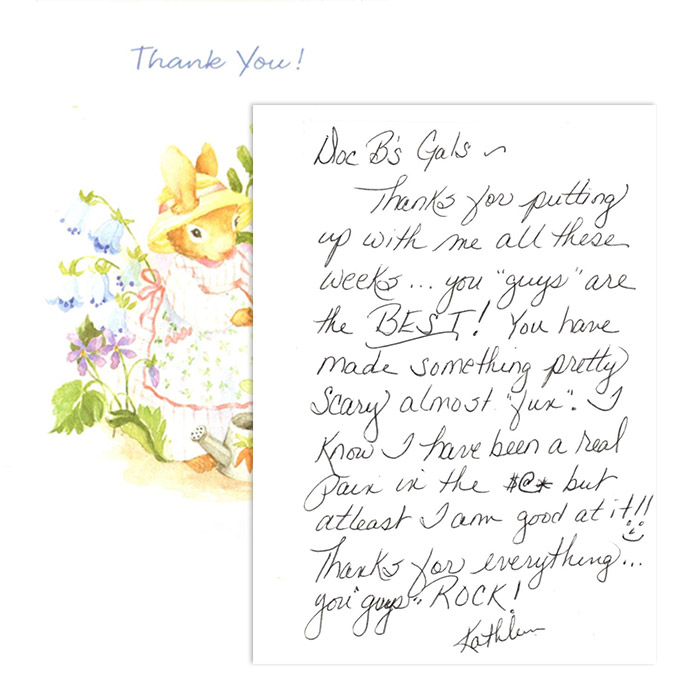 Thank You!
Doc B's Gals ~
Thanks for putting
up with me all these
weeks... you "guys" are
the BEST! You have
made something pretty
scary almost "fun". I
know I have been a real
pain in the $@* but
atleast I am good at it!!
Thanks for everything...
you "guys" ROCK!
Kathleen